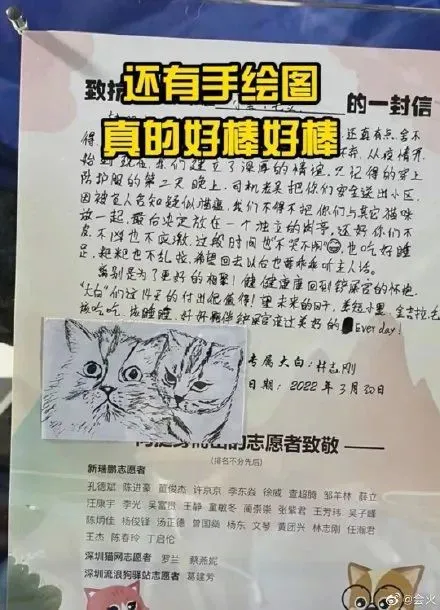 还有手绘图
真的好棒好棒
致抗
的一封信
还真有点舍不
得
从疫情开
始到现在，你们建立了深厚的情谊，只记得的穿上
防护服的第二天晚上，司机老吴把你们安全送出小区，
因被盲人告知疑似猫瘟，我们不得不把你们与其它猫咪
放一起，最后决定放在一个独立的房号，还好你们不
皮，不凶也不应激，过段时间也"不哭不闹"😄，也吃好睡
足，粑粑也不乱拉，希望回去以后也要乖乖听主人话。
离别是为了更好的相聚！健健康康回到铲屎官的怀抱，
"大白"们这14天的付出便值得！望未来的日子，
该吃吃，该睡睡，好好陪伴铲屎官渡过美好的Everday!
专属大白：林志刚
日期：2022年3月20日
的志愿者致敬
(排名不分先后)
新瑞鹏志愿者
孔德斌 陈进豪 董俊杰 许京京 李东焱 徐威 查超腾 邹羊林 薛立
汪康宇 李光 吴富贵 王静 童敏冬 蔺崇崇 张紫君 王芳玮 吴子峰
陈炳佳 杨俊锋 汤正德 曾国燊 杨东 文琴 黄团兴 林志刚 任瀚君
王杰 陈春玲 丁启伦
深圳猫网志愿者 罗兰 蔡燕妮
深圳流浪狗驿站志愿者 葛建芳
@会火